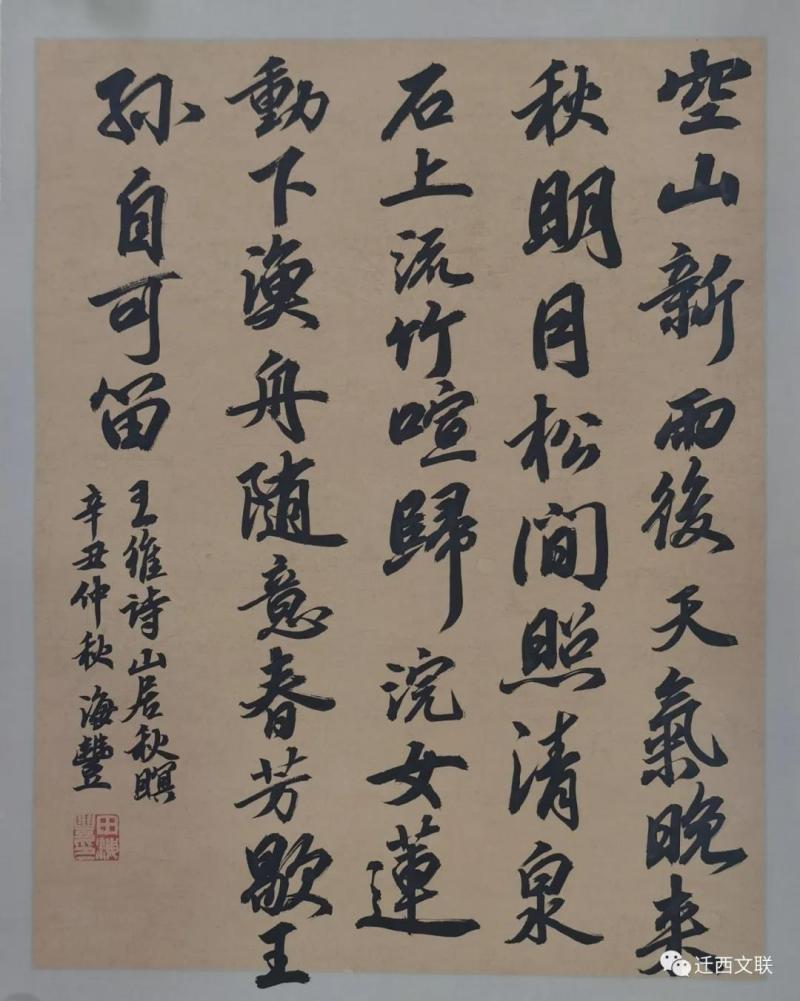 空山新雨後天氣晚来
秋明月松間照清泉
石上流竹喧歸浣女蓮
動下漁舟随意春芳歇王
孫自可留
王維詩山居秋暝
辛丑仲秋海豐
田海豐印
迁西文联